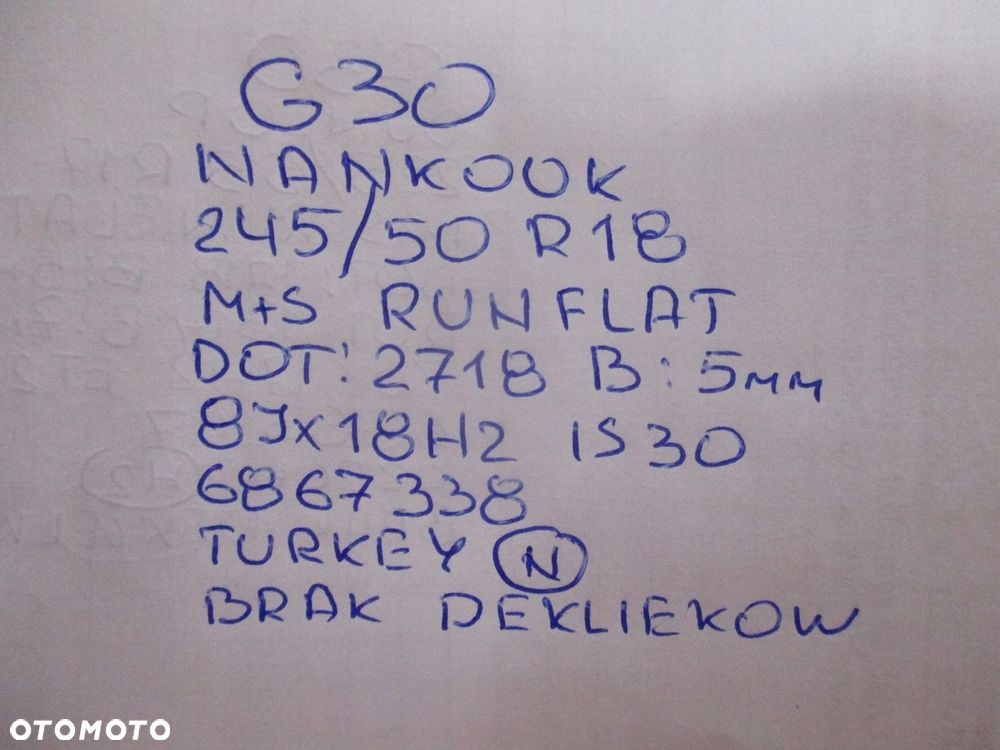 G30
HANKOOK
245/50 R18
M+S RUNFLAT
DOT: 2718 B: 5mm
8Jx18H2 IS30
6867338
TURKEY N
BRAK DEKLIEKOW
OTOMOTO